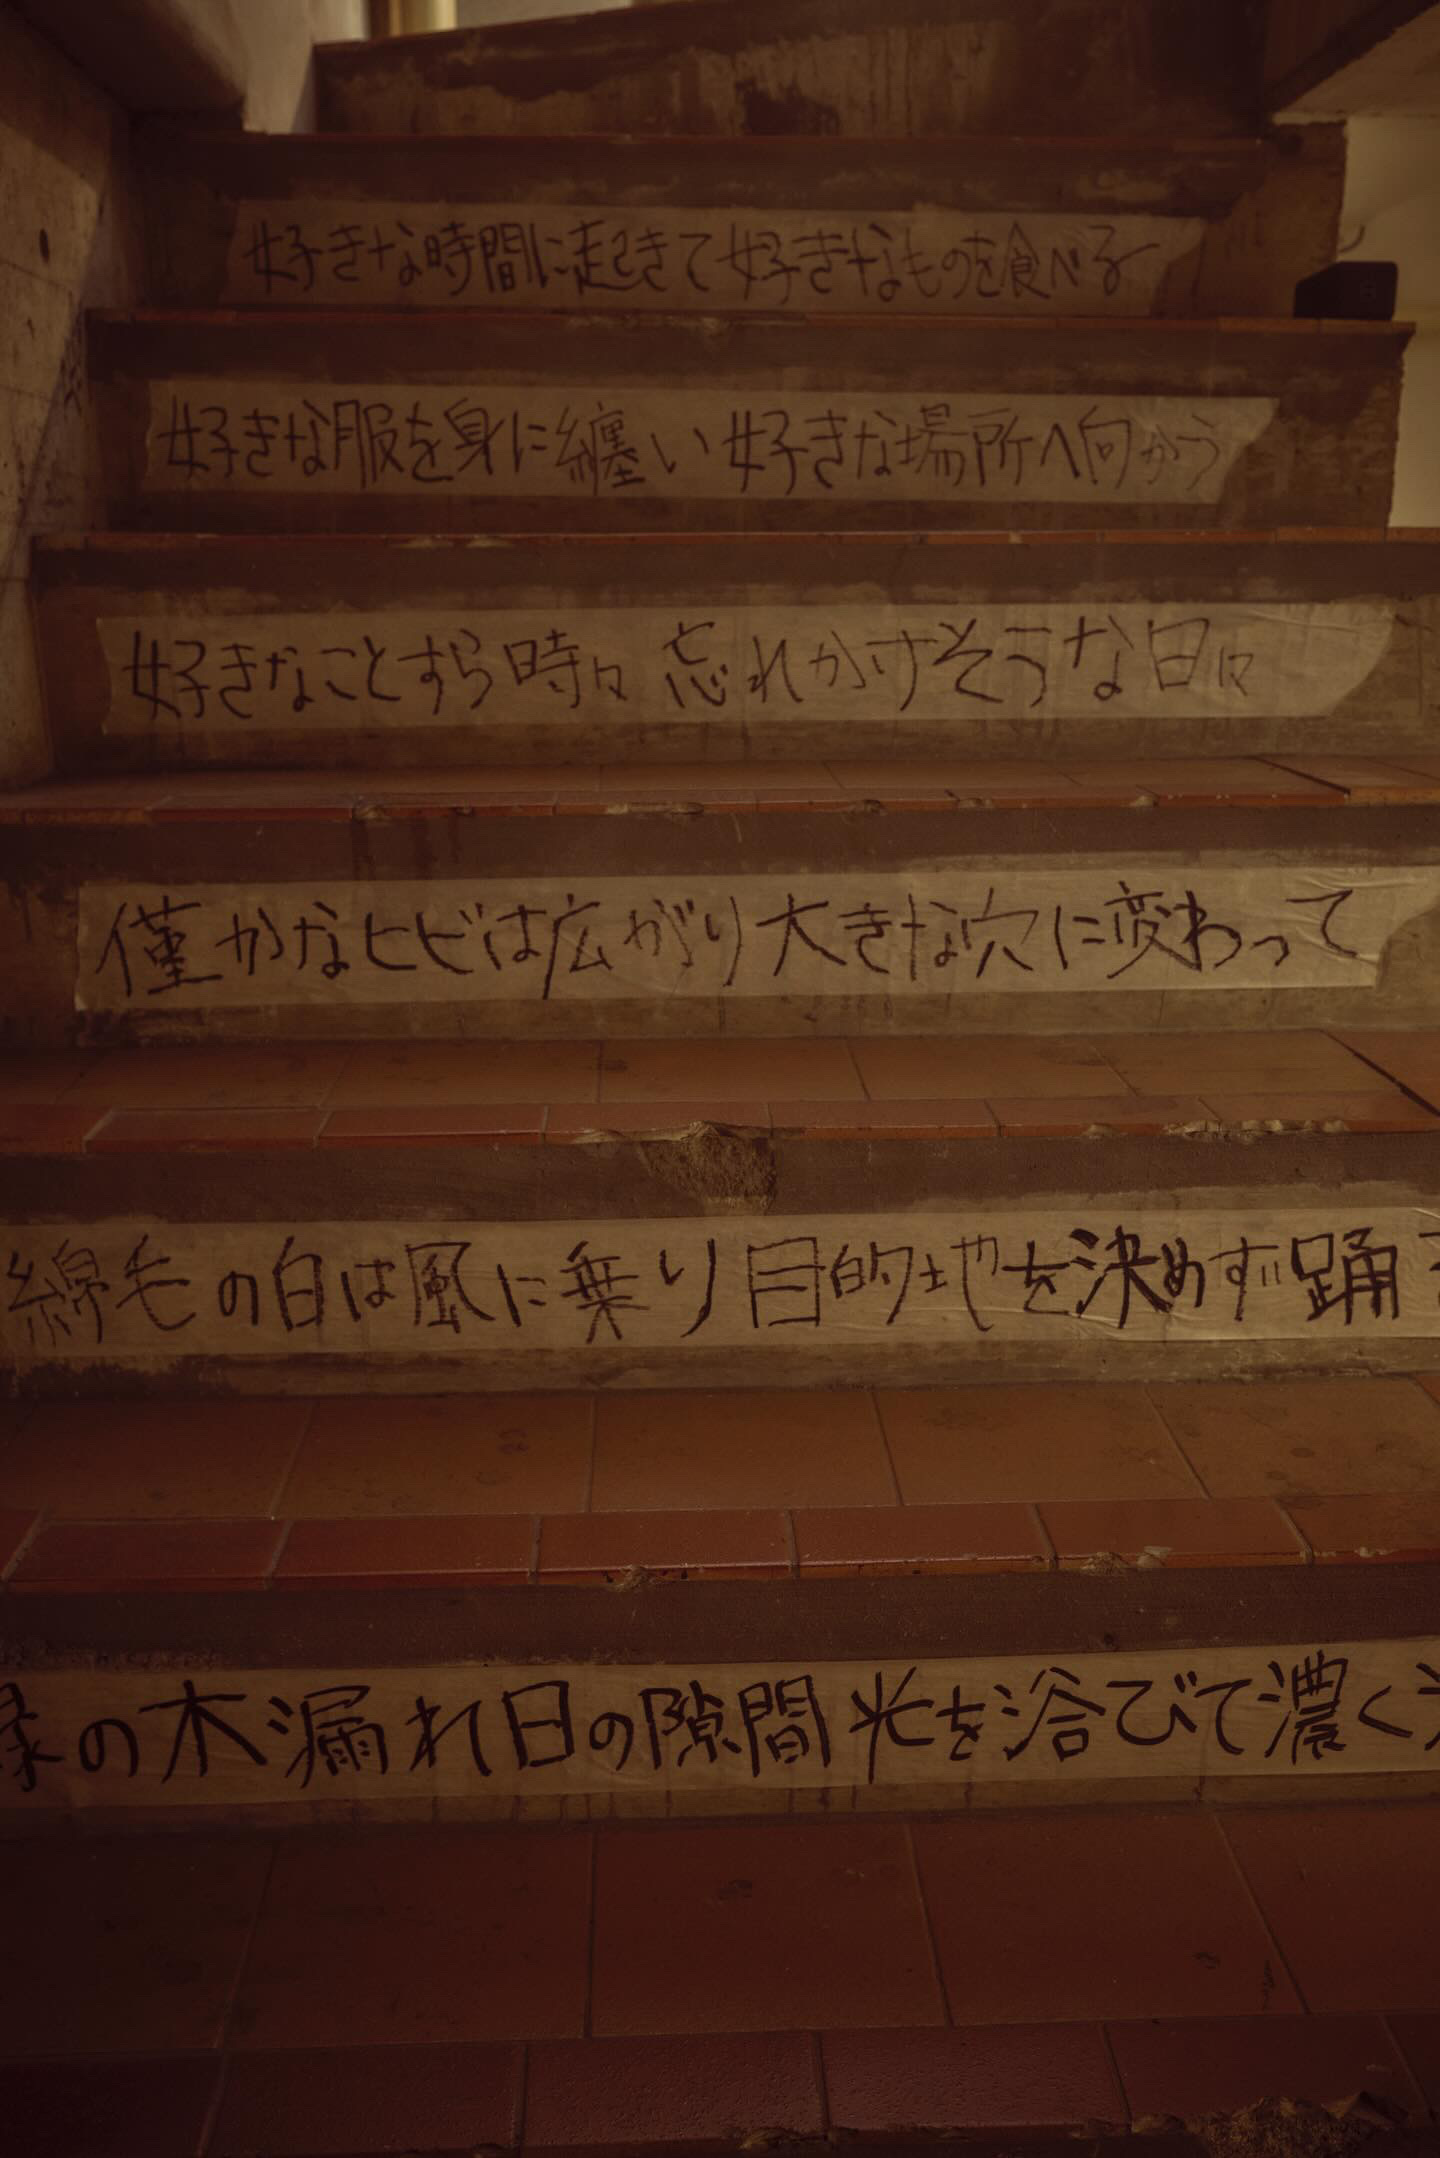 好きな時間に起きて好きなものを食べる
好きな服を身に纏い好きな場所へ向かう
好きなことすら時々忘れかけそうな日々
僅かなヒビは広がり大きな穴に変わって
綿毛の白は風に乗り目的地を決めず踊
の木漏れ日の隙間光を浴びて濃く